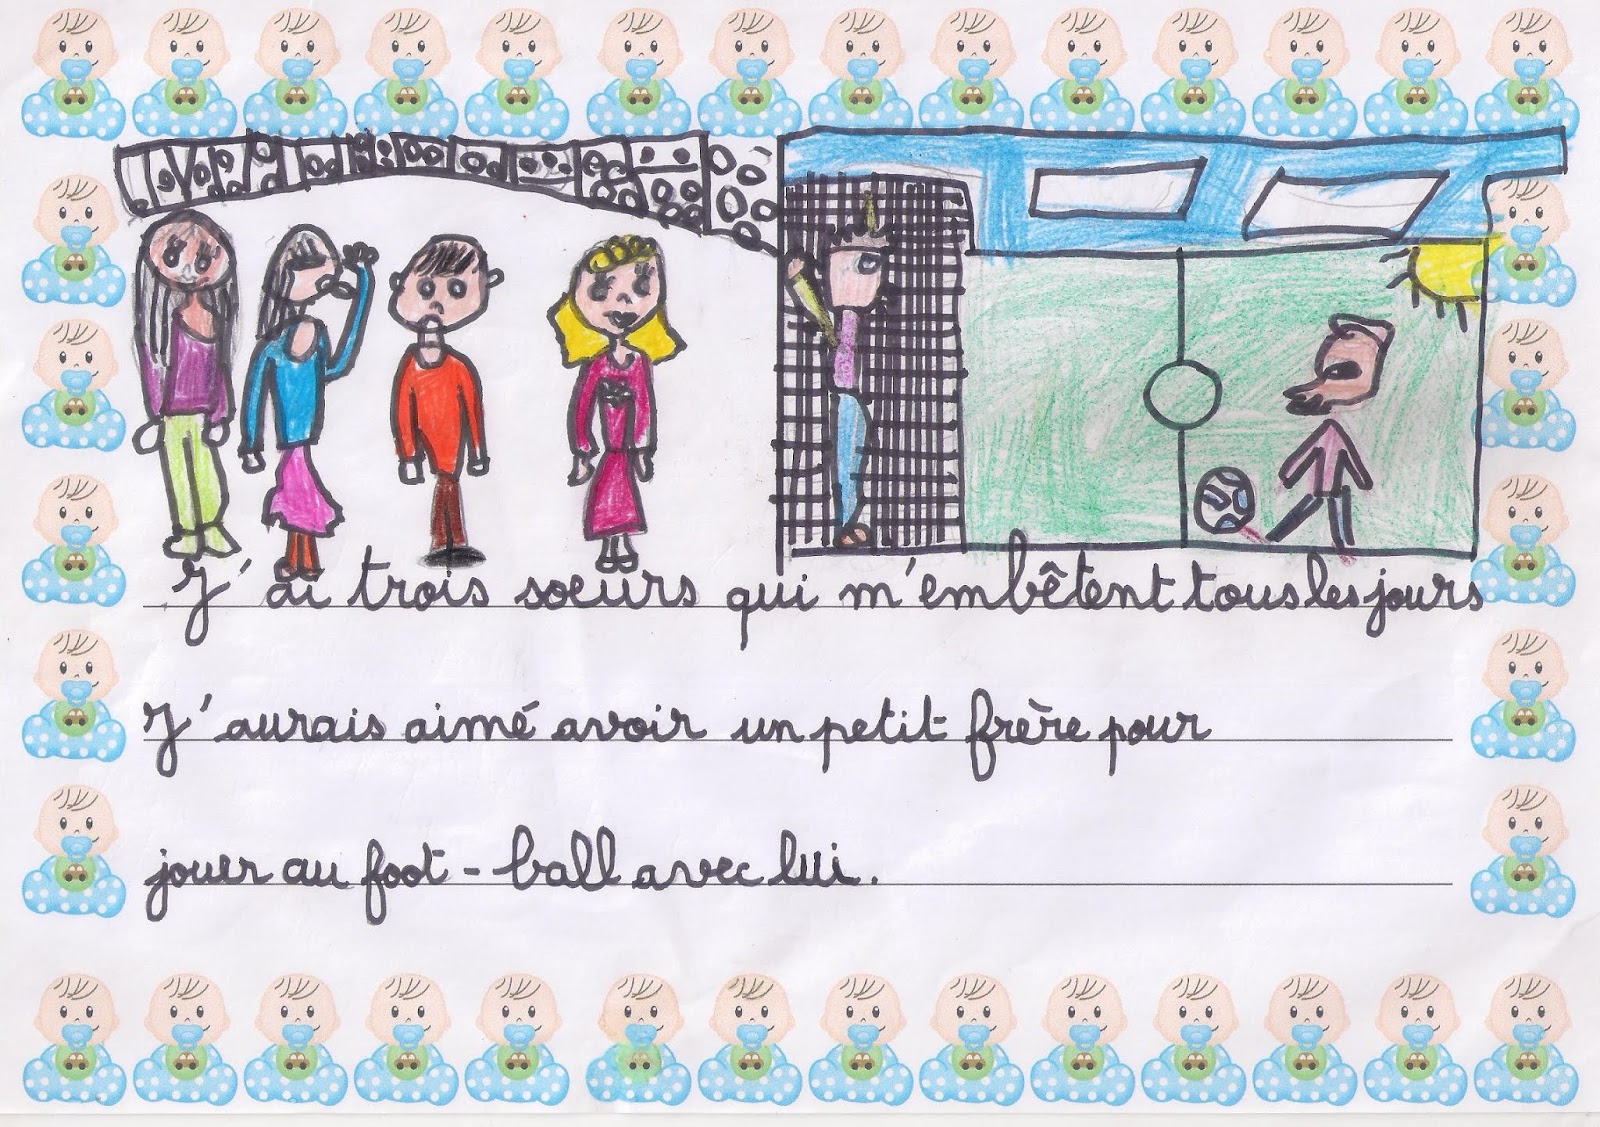 J'ai trois soeurs qui m'embêtent tous les jours
J'aurais aimé avoir un petit frère pour
jouer au foot-ball avec lui.